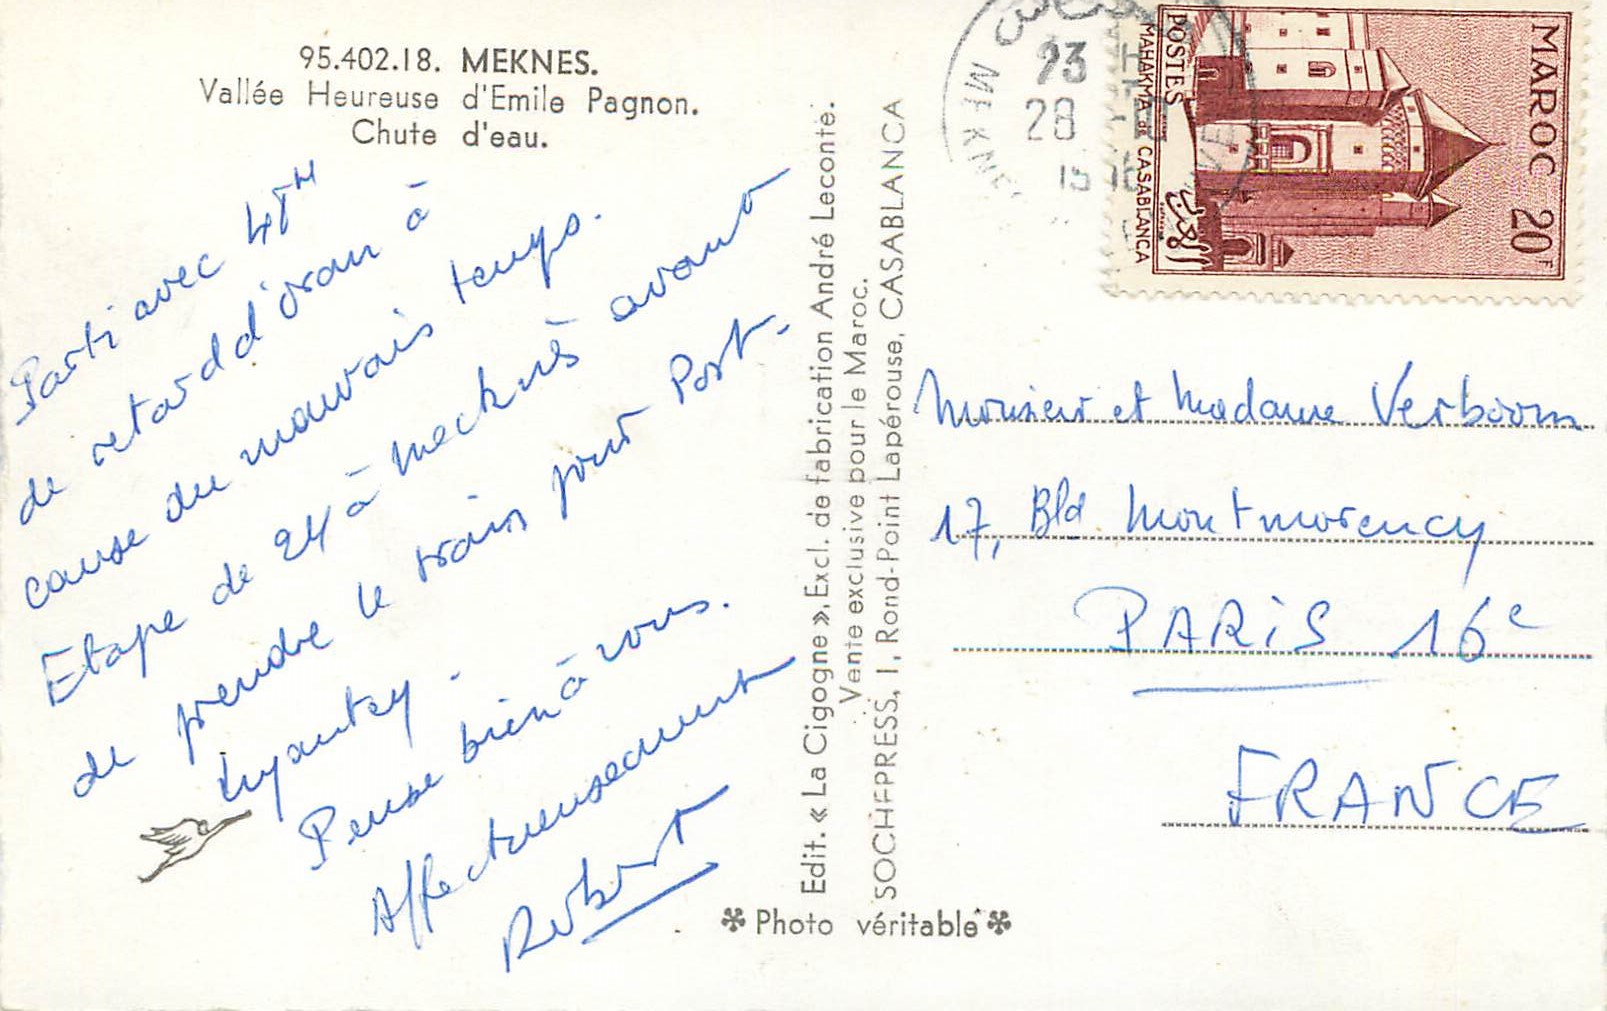 95.402.18. MEKNES.
Vallée Heureuse d'Emile Pagnon.
Chute d'eau.
Parti avec 48H
de retard d'oran à
cause du mauvais temps.
Etape de 24 à Mecknès avant
de prendre le train pour Port-
Lyautey.
Pense bien à vous.
Affectueusement
Robert
Edit. « La Cigogne », Excl. de fabrication André Leconte.
Vente exclusive pour le Maroc.
SOCHEPRESS, 1, Rond-Point Lapérouse, CASABLANCA
Photo véritable
MEKNES
23 H
28 -10
MAROC 20F
POSTES
MAHAKMA de CASABLANCA
المغرب
Monsieur et Madame Verboom
17, Bld Montmorency
PARIS 16e
FRANCE